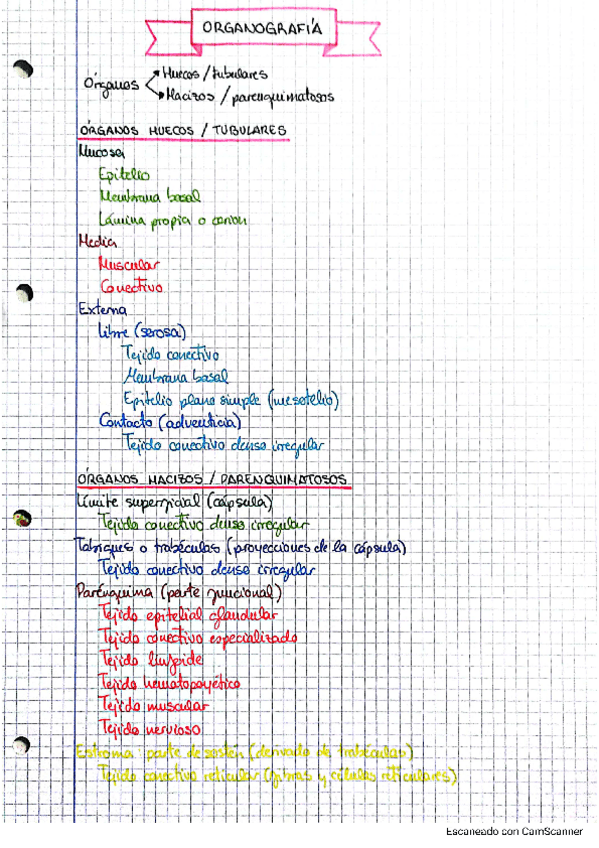 ORGANOGRAFÍA
Órganos
Huecos / tubulares
Macizos / parenquimatosos
ÓRGANOS HUECOS / TUBULARES
Mucosa
Epitelio
Membrana basal
Lámina propia o corion
Media
Muscular
Conectivo
Externa
Libre (serosa)
Tejido conectivo
Membrana basal
Epitelio plano simple (mesotelio)
Contacto (adventicia)
Tejido conectivo denso irregular
ÓRGANOS MACIZOS / PARENQUIMATOSOS
Límite superficial (cápsula)
Tejido conectivo denso irregular
Tabiques o trabéculas (proyecciones de la cápsula)
Tejido conectivo denso irregular
Parénquima (parte funcional)
Tejido epitelial glandular
Tejido conectivo especializado
Tejido linfoide
Tejido hematopoyético
Tejido muscular
Tejido nervioso
Estroma parte de sostén (derivado de trabéculas)
Tejido conectivo reticular (fibras y células reticulares)
Escaneado con CamScanner